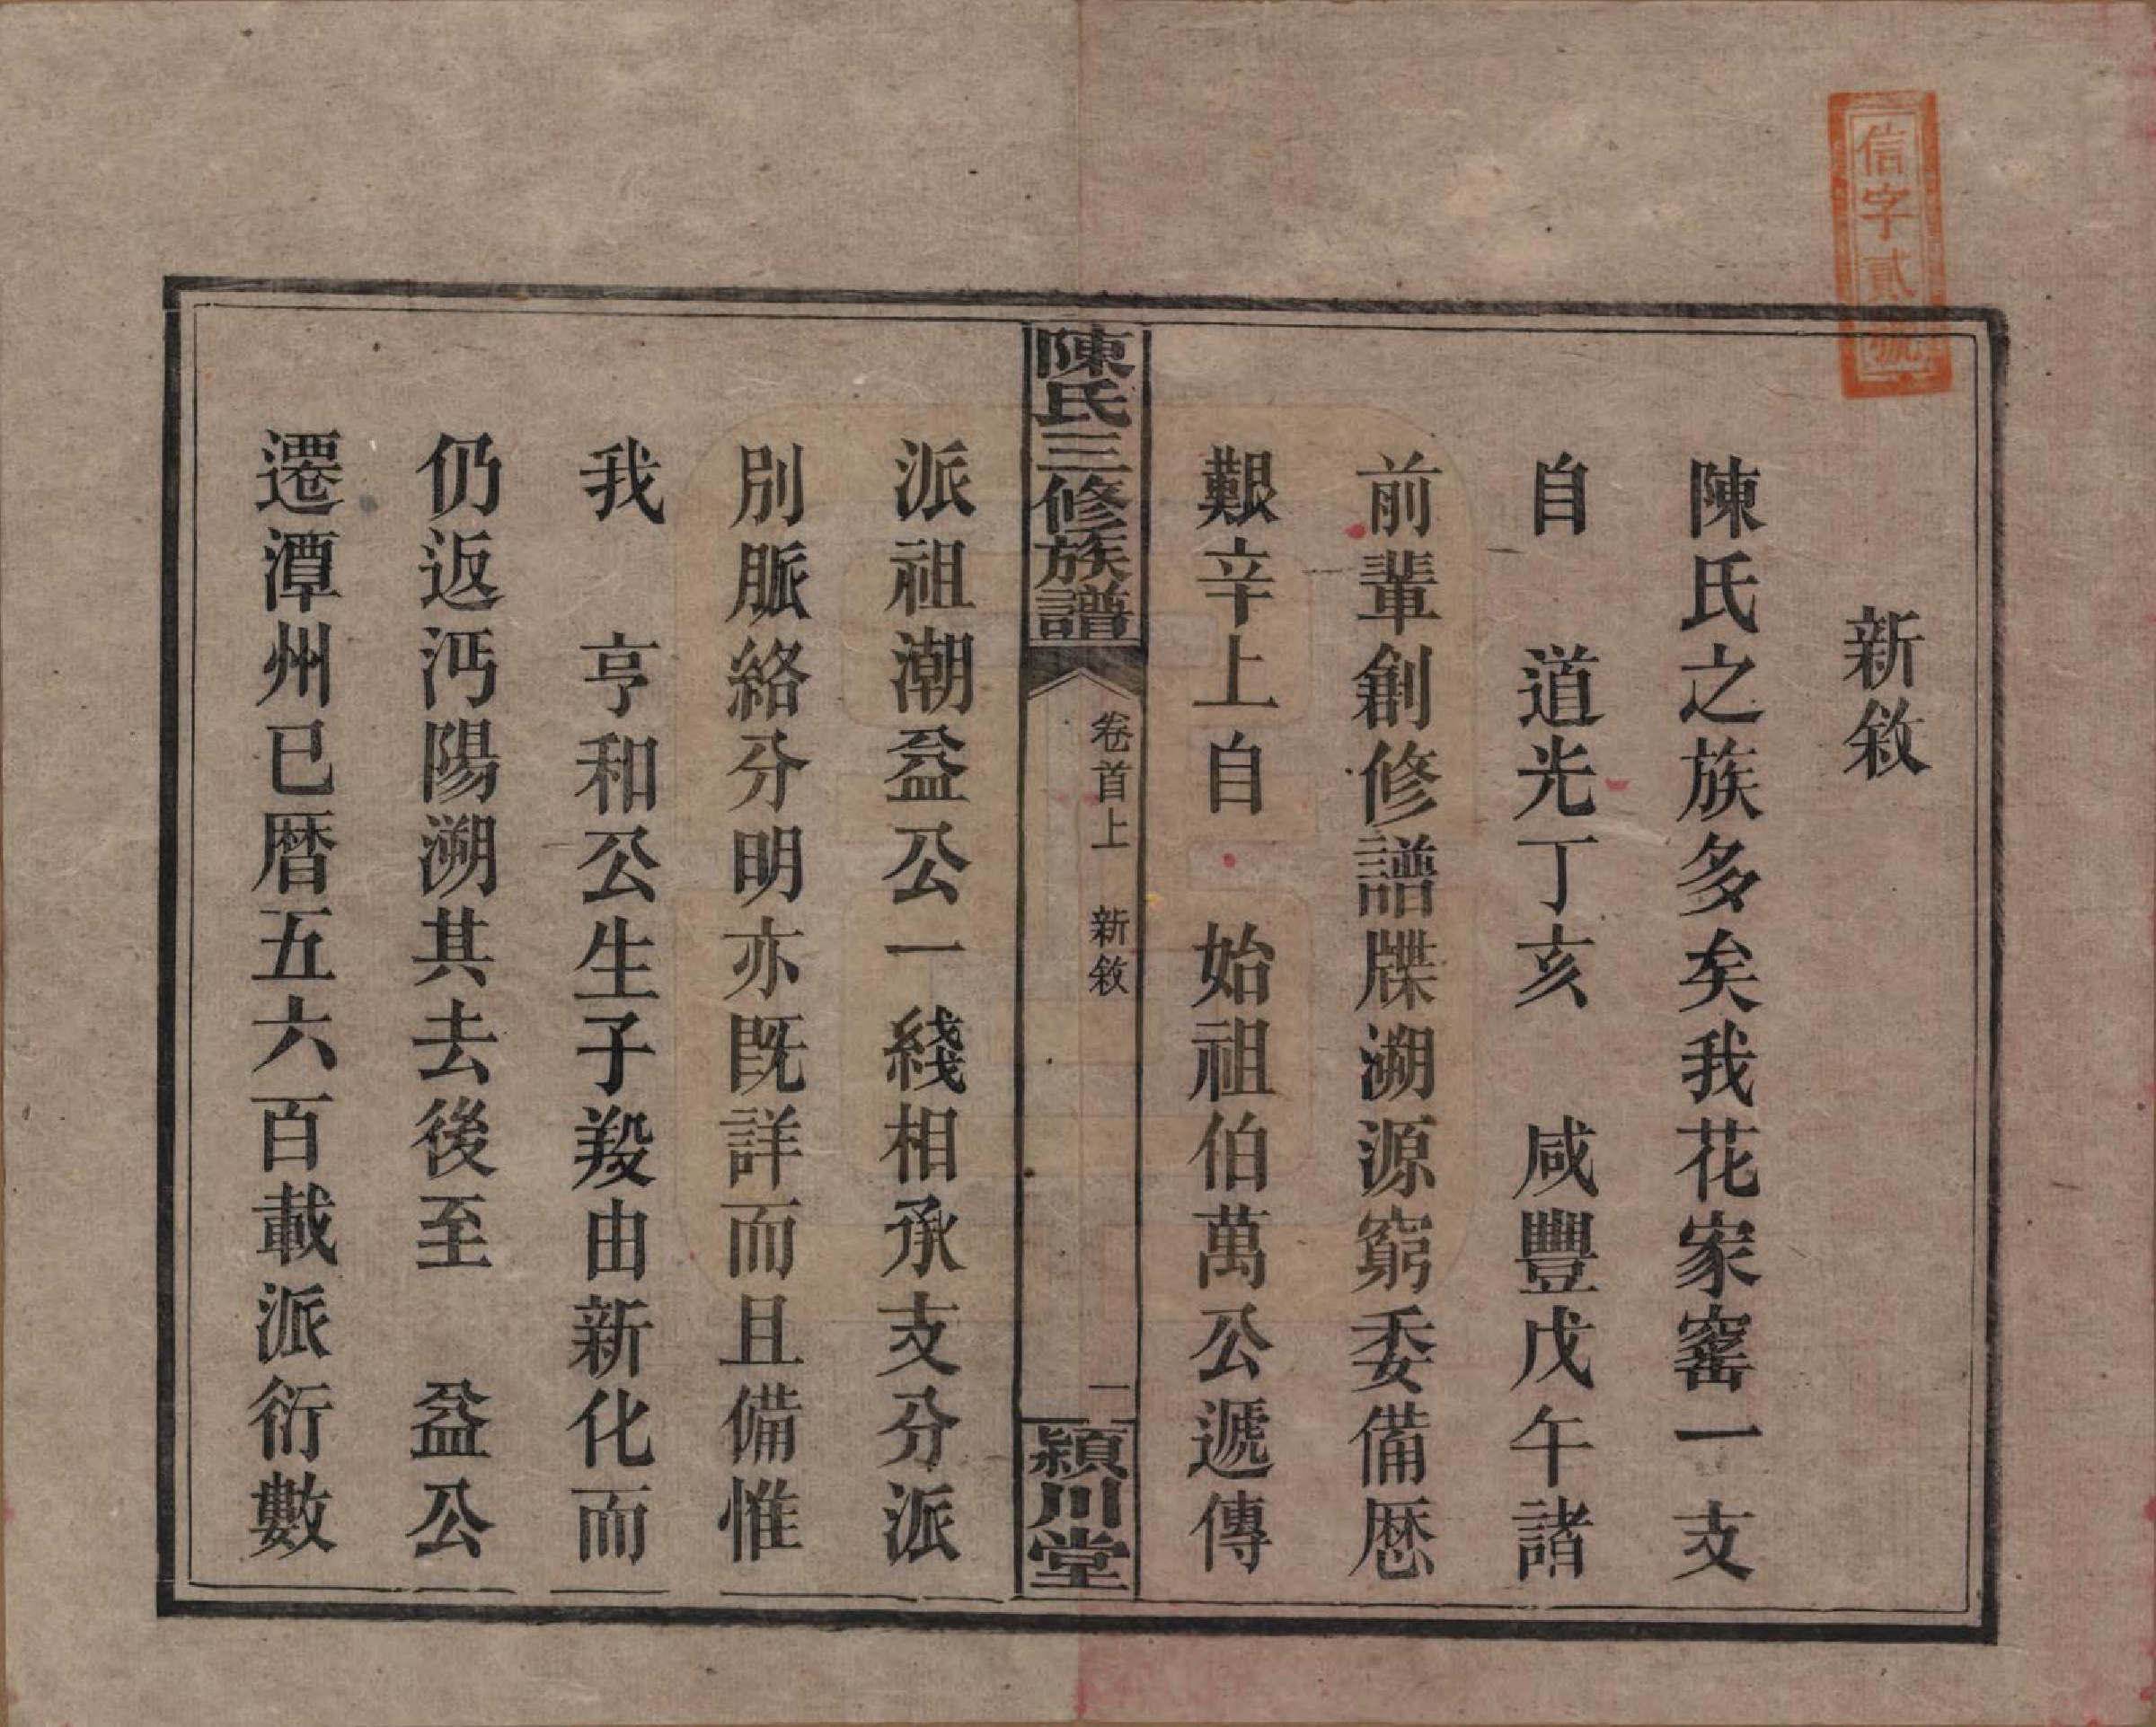 信字貳號
新敘
陳氏之族多矣我花家窰一支
自　道光丁亥　咸豐戊午諸
前輩創修譜牒溯源窮委備歷
艱辛上自　始祖伯萬公遞傳
陳氏三修族譜
卷首上　新敘
一
潁川堂
派祖潮益公一綫相承支分派
別脈絡分明亦既詳而且備惟
我　亨和公生子羖由新化而
仍返沔陽溯其去後至　益公
遷潭州已曆五六百載派衍數